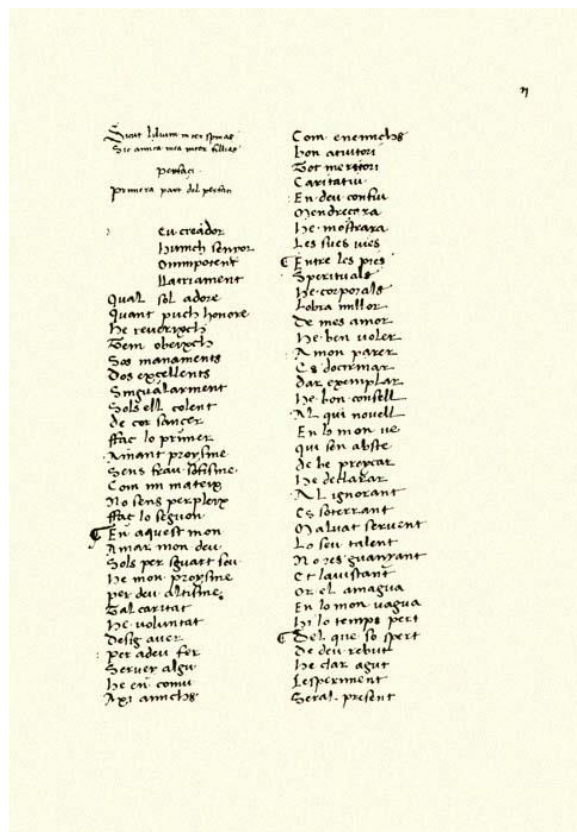 n
Sicut lilium inter spinas
Sic amica mea inter fillies
Perfaçi
Primera part del perfaci
Eu creador
hunich senyor
Omnipotent
Llatriament
Qual sol adore
Quant puch honore
He reverixch
Tem obeixch
Sos manaments
Dos excellents
Singularment
Sols ell colent
de cor sancer
ffac lo primer
Amant proxsme
Sens frau sofisme
Com mi mateix
No sens perpleix
ffac lo segon
En aquest mon
Amar mon deu
Sols per sguart seu
He mon proxsme
per deu altisme
Tal caritat
He voluntat
Desig aver
per a deu fer
Server algu
he en comu
Axi amichs
Com enemichs
bon aiutori
Tot meritori
Caritatiu
En deu confiu
Mendreçara
he mostrara
Les sues vies
Entre les pies
Sperituals
He corporals
Lobra millor
De mes amor
He ben voler
A mon parer
Es doctrinar
dar exemplar
He bon consell
Al qui novell
En lo mon ve
qui sen abste
de be prehicar
he declarar
Al ignorant
Es soterrant
Malvat servent
Lo seu talent
No res guanyant
Et lavistant
Or el amagua
En lo mon vagua
hi lo temps pert
Del que so spert
De deu rebut
he clar agut
Lesperiment
Seral present